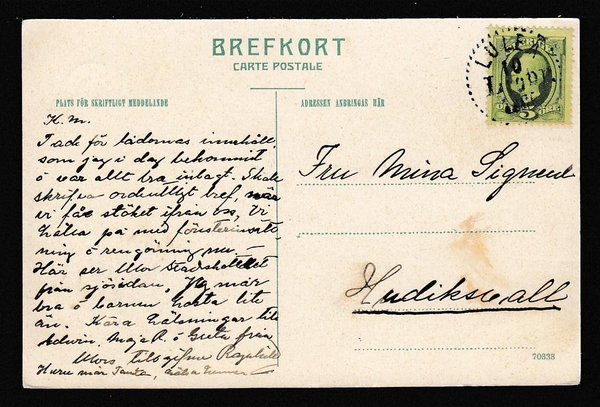 BREFKORT
CARTE POSTALE
PLATS FÖR SKRIFTLIGT MEDDELANDE
ADRESSEN ANBRINGAS HÄR
LULEÅ
10
5
K. M.
Tack för lådornas innehåll,
som jag i dag bekommit
o var allt bra inlagt. Skall
skrifva ordentligt bref, när
vi få stöket ifrån oss, Vi
hålla på med fönsterinsätt-
ning o rengörning nu –
Här ser Mor Stadshotellet
från sjösidan, Jag mår
bra o barnen hosta lite
än. Kära hälsningar till
Edwin, Maja R. o Greta från
Mors tillgifna Ragnhild
Huru mår Tante, hälsa henne
Fru Mina Signeul
Hudiksvall
70333